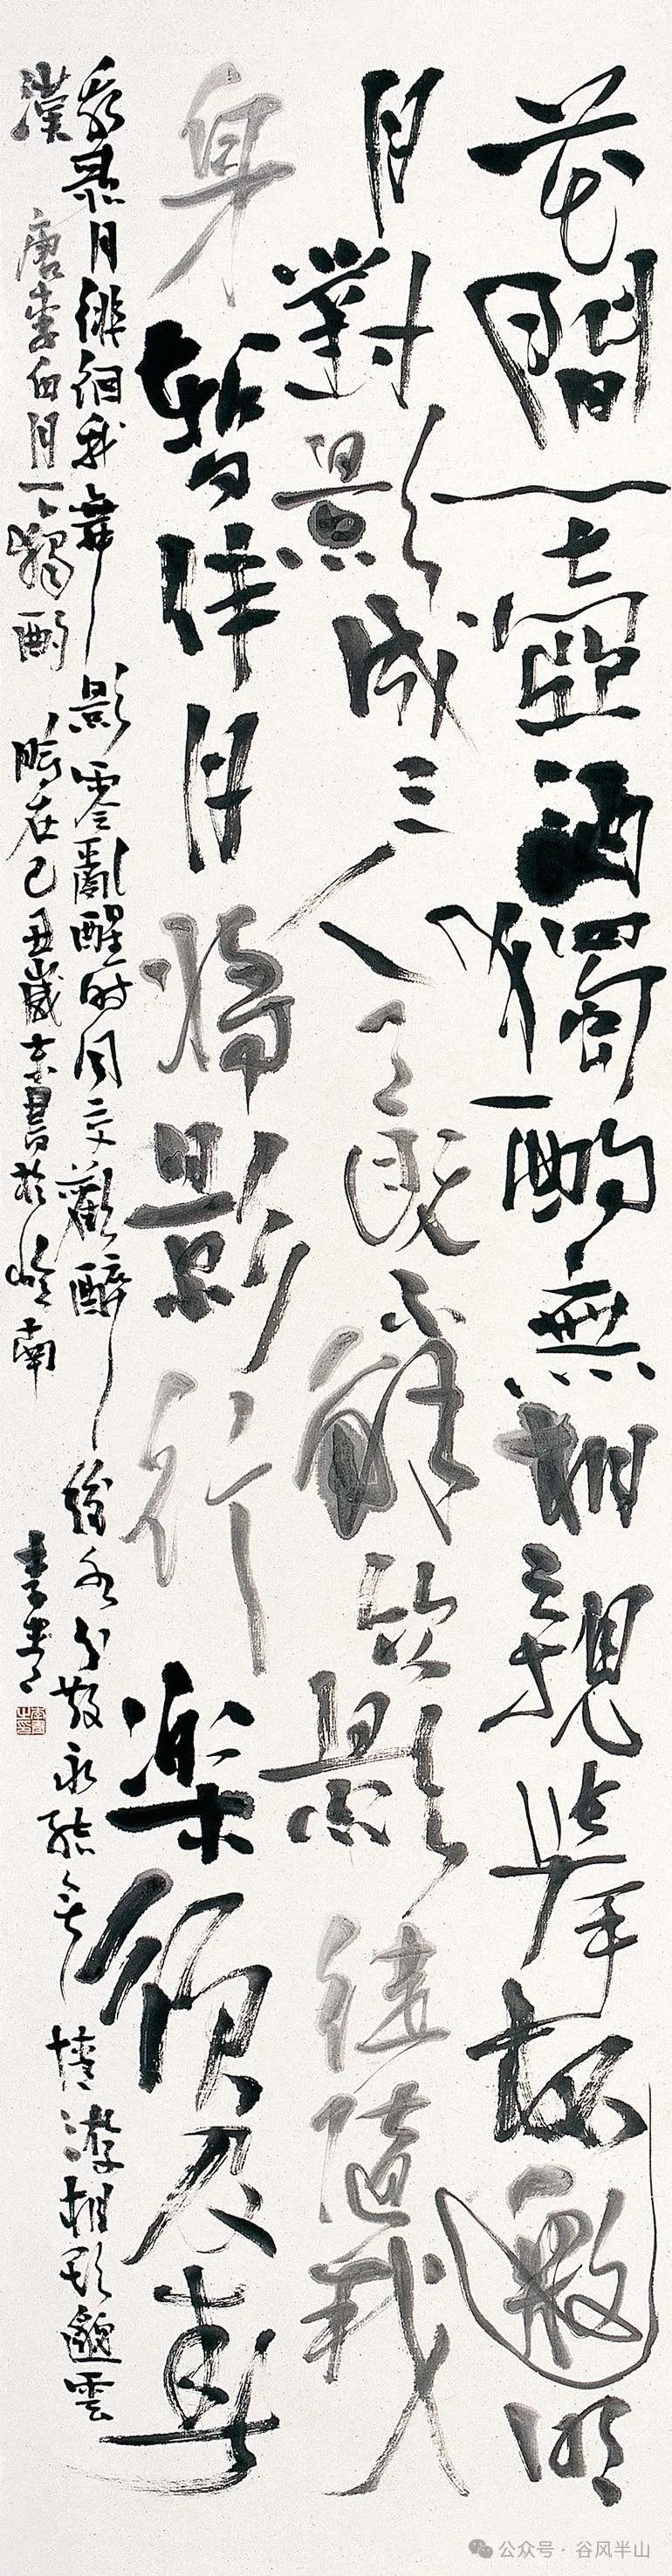 花間一壺酒獨酌無相親舉杯邀明
月對影成三人既不解飲影徒隨我
身暫伴月將影行楽須及春
我歌月徘徊我舞影零亂醒时同交歡醉後各分散永結無情游相期邈雲
漢 唐李白月下獨酌 時在己丑歲末書於嶺南 李青
公众号·谷风半山